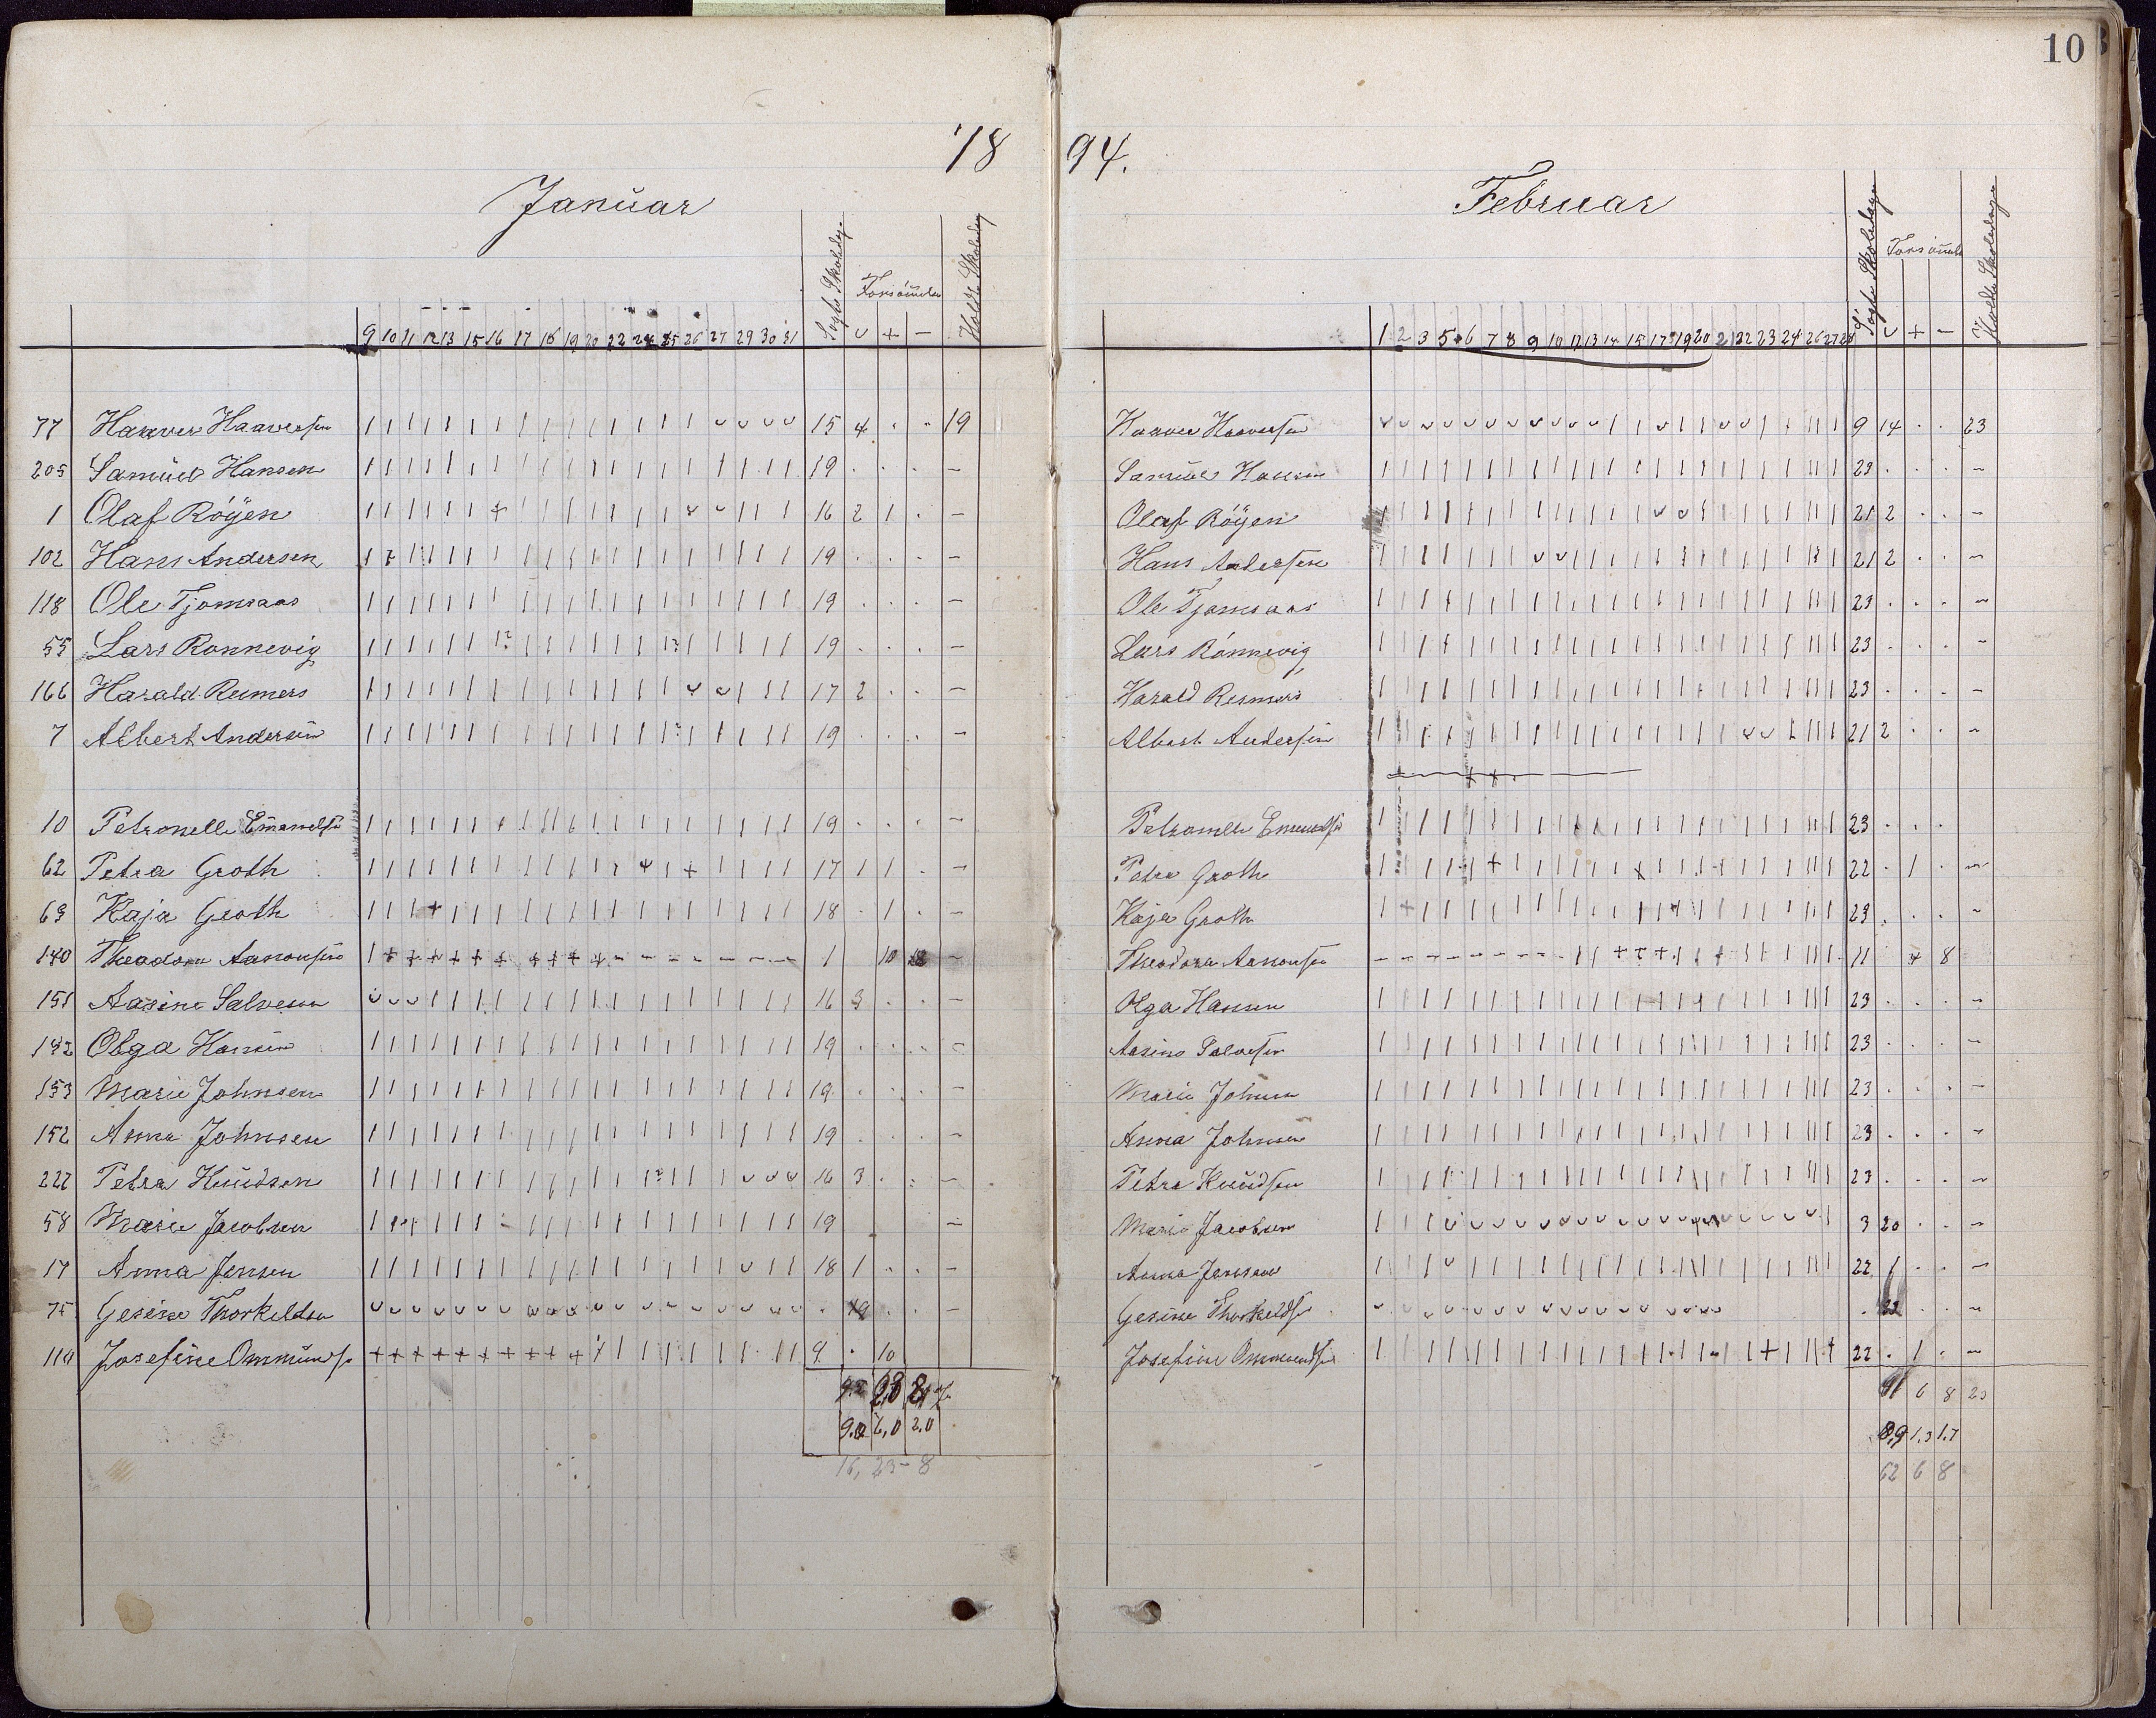 10
18 94.
Januar
Søgte Skoledage
Forsømelser
Holdte Skoledage
9 10 11 12 13 15 16 17 18 19 20 22 24 25 26 27 29 30 31 ᴗ + —
77 Haaver Haaversen 15 4 . . 19
205 Samuel Hansen 19 . . . —
1 Olaf Röyen 16 2 1 . —
102 Hans Andersen 19 . . . —
118 Ole Tjomsaas 19 . . . —
55 Lars Ronnevig 19 . . . —
166 Harald Reimers 17 2 . . —
7 Albert Andersen 19 . . . —
10 Petronelle Emanuelsen 19 . . . —
62 Petra Groth 17 1 1 . —
63 Kaja Groth 18 . 1 . —
140 Theodora Aanonsen 1 10 8 —
151 Aasine Salvesen 16 3 . . —
142 Olga Hansen 19 . . . —
153 Marie Johnsen 19 . . . —
152 Anna Johnsen 19 . . . —
222 Petra Knudsen 16 3 . . —
58 Marie Jacobsen 19 —
17 Anna Jensen 18 1 . . —
75 Gesine Thorkeldsen . 19 . . —
110 Josefine Ommundsen 9 . 10
9.0 6,0 2.0
16, 23 - 8
Februar
Søgte Skoledage
Forsömelser
Holdte Skoledage
1 2 3 5 6 7 8 9 10 12 13 14 15 17 19 20 21 22 23 24 26 27 28 ᴗ + —
Haaver Haaversen 9 14 . . 23
Samuel Hansen 23 . . . —
Olaf Röyen 21 2 . . —
Hans Andersen 21 2 . . —
Ole Tjomsaas 23 . . . —
Lars Rönnevig 23 . . . —
Harald Reimers 23 . . . —
Albert Andersen 21 2 . . —
Petronelle Emanuelsen 23 . . .
Petra Groth 22 . 1 . —
Kaja Groth 23 . . . —
Theodora Aanonsen 11 4 8
Olga Hansen 23 . . . —
Aasine Salvesen 23 . . . —
Marie Johnsen 23 . . . —
Anna Johnsen 23 . . . —
Petra Knudsen 23 . . . —
Marie Jacobsen 3 20 . . —
Anna Jenssen 22 1 . . —
Gesine Thorkeldsen . . . —
Josefine Ommundsen 22 . 1 . —
6 8 23
8,9 1.3 1.7
62 6 8